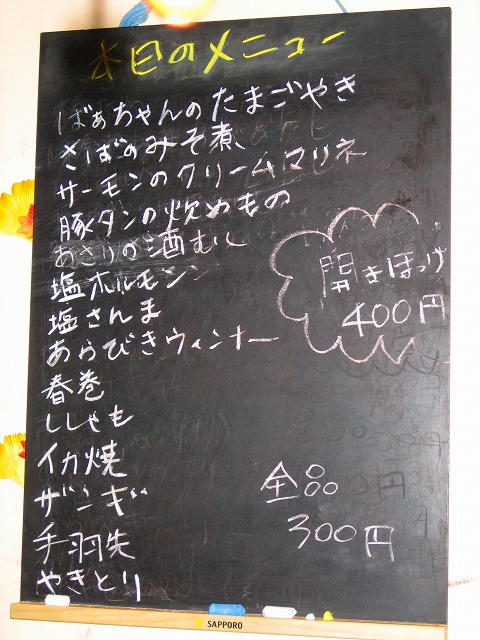 本日のメニュー
ばぁちゃんのたまごやき
さばのみそ煮
サーモンのクリームマリネ
豚タンの炒めもの
あさりの酒むし
塩ホルモン
塩さんま
あらびきウィンナー
春巻
ししゃも
イカ焼
ザンギ
手羽先
やきとり
開きほっけ
400円
全品
300円
SAPPORO